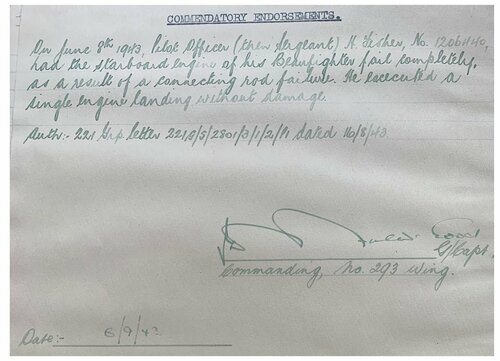 COMMENDATORY ENDORSEMENTS.
On June 8th 1943, Pilot Officer (then Sergeant) H. Fisher, No. 1206440,
had the starboard engine of his Beaufighter fail completely,
as a result of a connecting rod failure. He executed a
single engine landing without damage.
Auth:- 221 Grp letter 221,S/S/2801/3/1/2/P1 dated 16/8/43.
G/Capt.
Commanding, No. 293 Wing.
Date:- 6/9/43